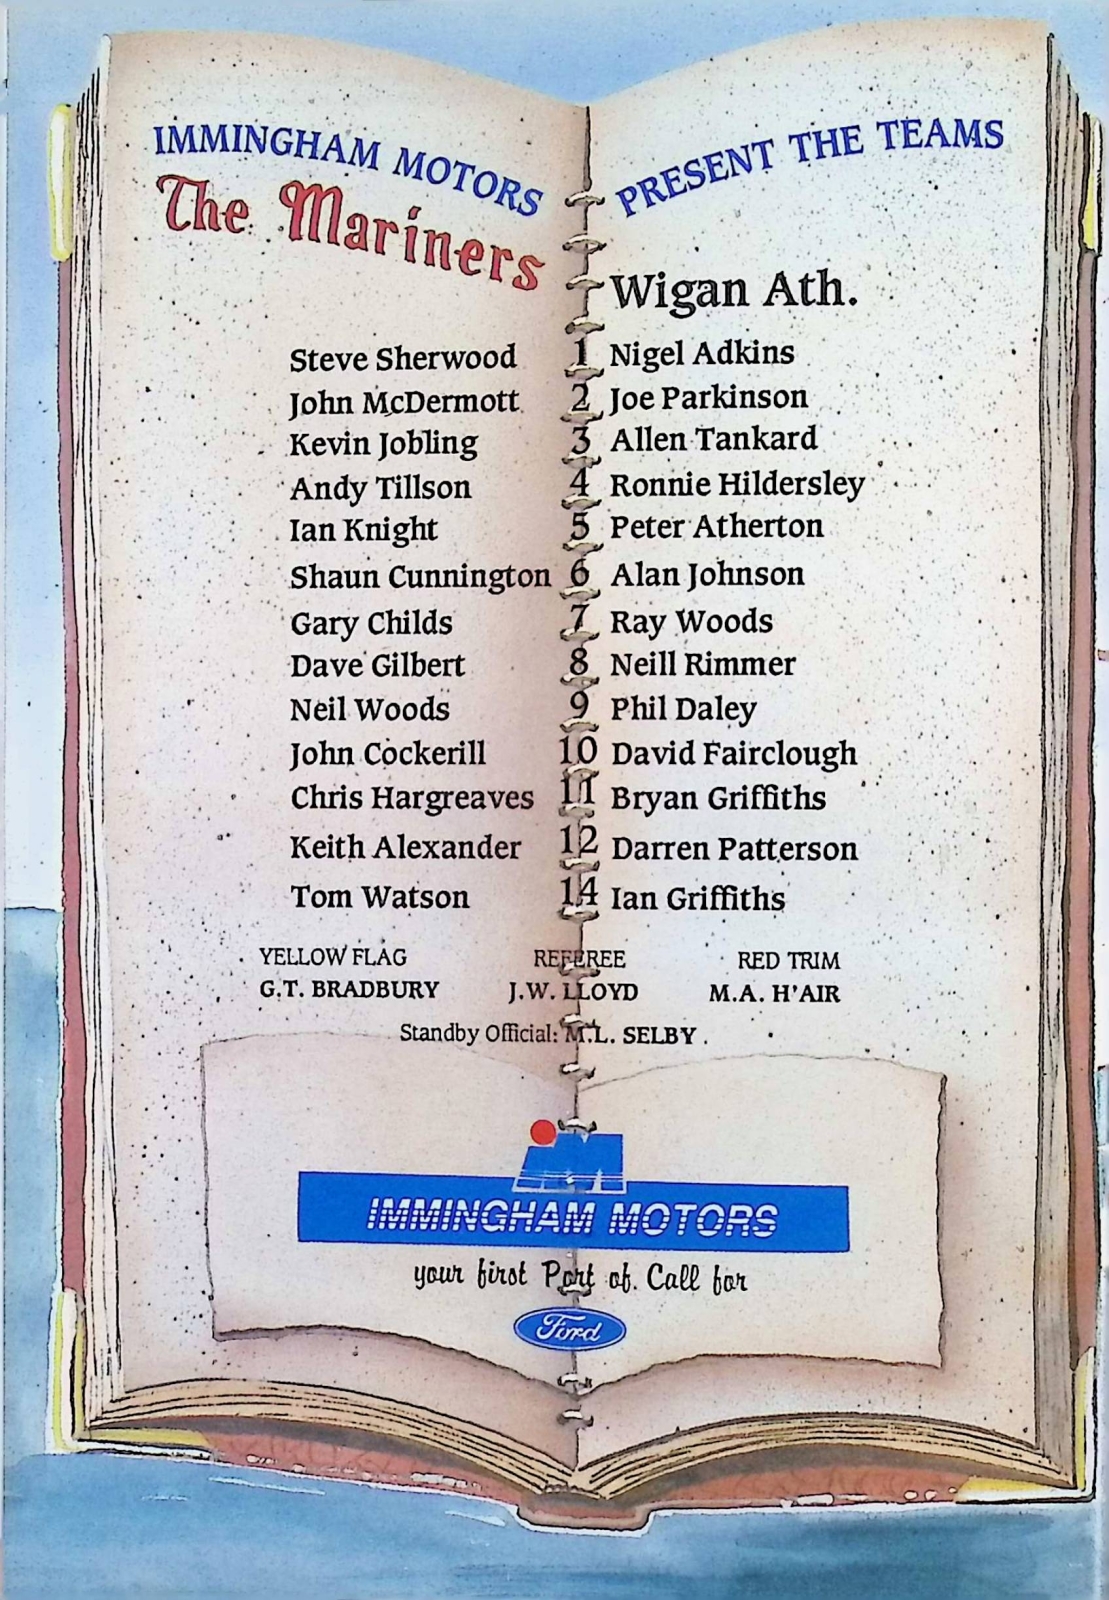 IMMINGHAM MOTORS PRESENT THE TEAMS
The Mariners
Wigan Ath.
Steve Sherwood 1 Nigel Adkins
John McDermott 2 Joe Parkinson
Kevin Jobling 3 Allen Tankard
Andy Tillson 4 Ronnie Hildersley
Ian Knight 5 Peter Atherton
Shaun Cunnington 6 Alan Johnson
Gary Childs 7 Ray Woods
Dave Gilbert 8 Neill Rimmer
Neil Woods 9 Phil Daley
John Cockerill 10 David Fairclough
Chris Hargreaves 11 Bryan Griffiths
Keith Alexander 12 Darren Patterson
Tom Watson 14 Ian Griffiths
YELLOW FLAG REFEREE RED TRIM
G.T. BRADBURY J.W. LLOYD M.A. H'AIR
Standby Official: M.L. SELBY.
IMMINGHAM MOTORS
your first Port of Call for
Ford